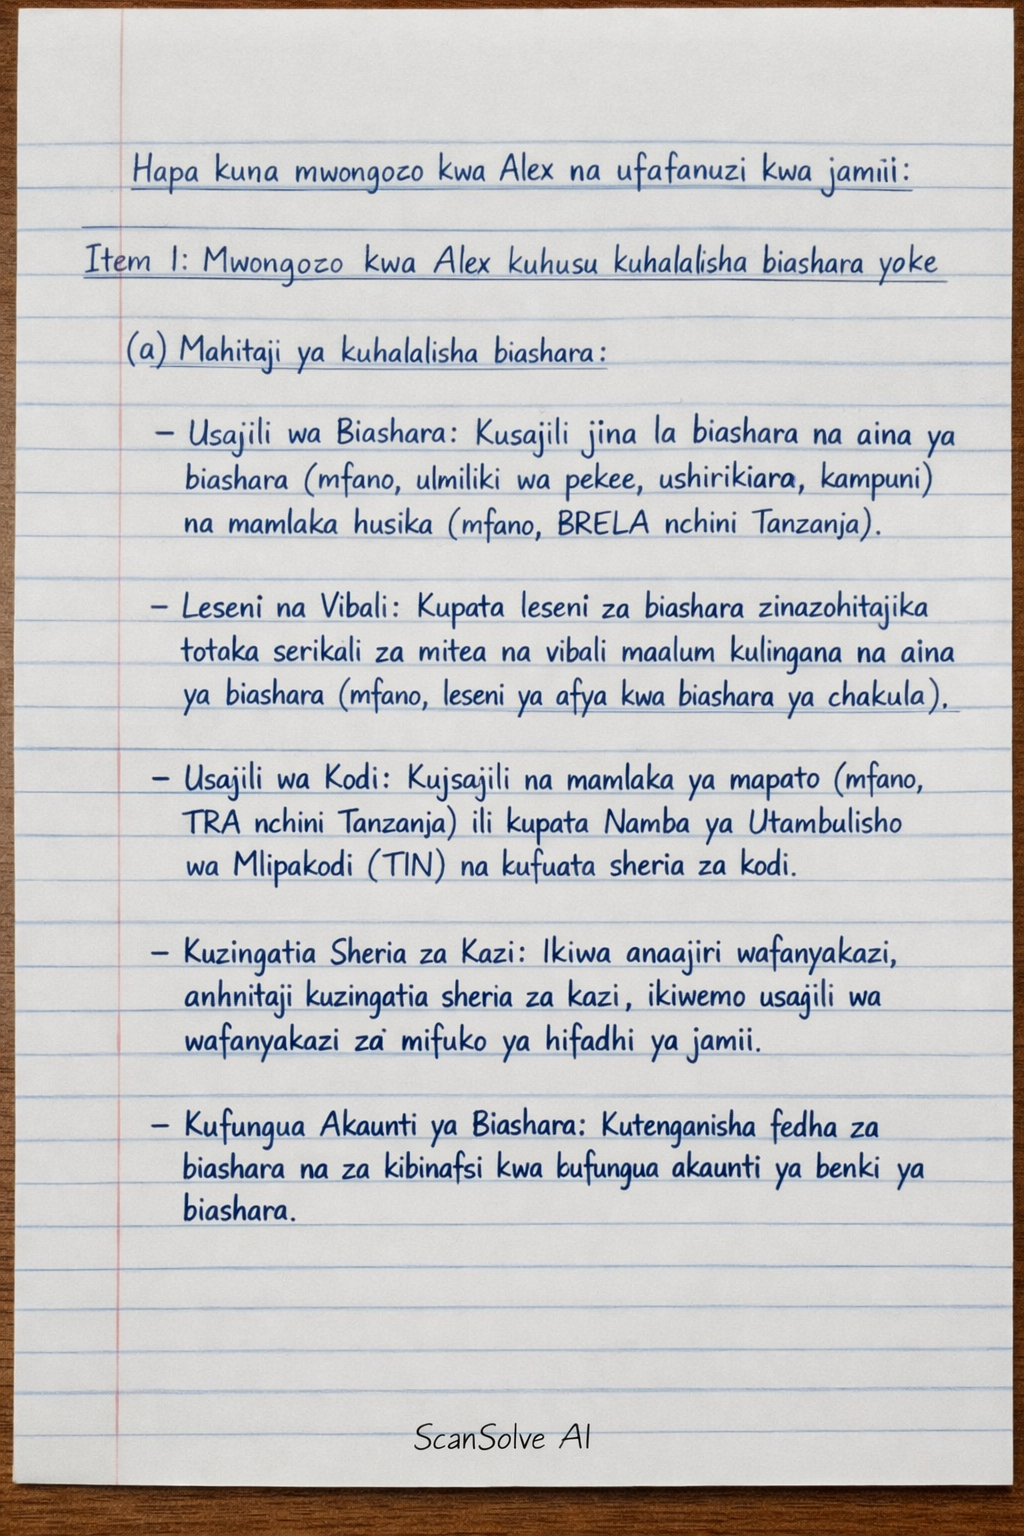 Hapa kuna mwongozo kwa Alex na ufafanuzi kwa jamiii:
Item 1: Mwongozo kwa Alex kuhusu kuhalalisha biashara yoke
(a) Mahitaji ya kuhalalisha biashara:
– Usajili wa Biashara: Kusajili jina la biashara na aina ya
biashara (mfano, ulmiliki wa pekee, ushirikiara, kampuni)
na mamlaka husika (mfano, BRELA nchini Tanzanja).
– Leseni na Vibali: Kupata leseni za biashara zinazohitajika
totaka serikali za mitea na vibali maalum kulingana na aina
ya biashara (mfano, leseni ya afya kwa biashara ya chakula).
– Usajili wa Kodi: Kujsajili na mamlaka ya mapato (mfano,
TRA nchini Tanzanja) ili kupata Namba ya Utambulisho
wa Mlipakodi (TIN) na kufuata sheria za kodi.
– Kuzingatia Sheria za Kazi: Ikiwa anaajiri wafanyakazi,
anhnitaji kuzingatia sheria za kazi, ikiwemo usajili wa
wafanyakazi za mifuko ya hifadhi ya jamii.
– Kufungua Akaunti ya Biashara: Kutenganisha fedha za
biashara na za kibinafsi kwa bufungua akaunti ya benki ya
biashara.
ScanSolve AI